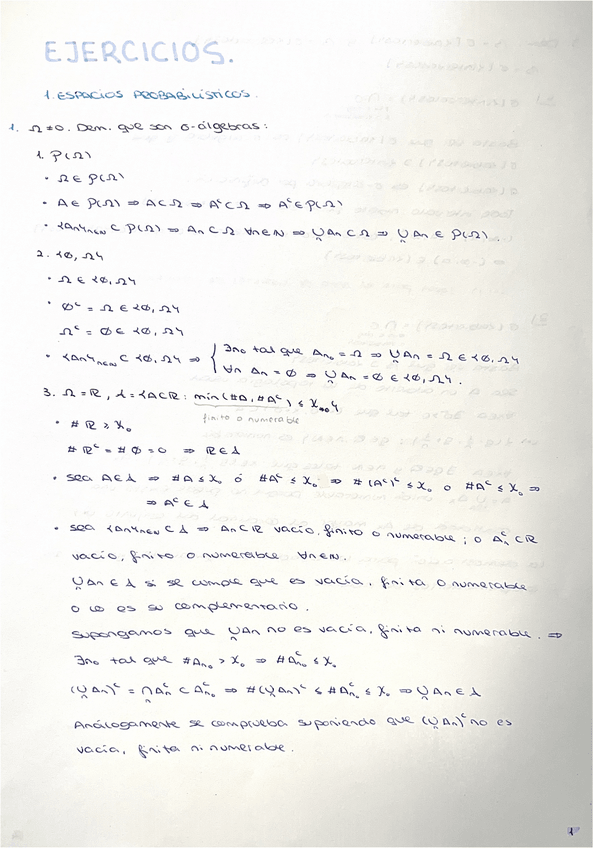 EJERCICIOS.
1. ESPACIOS PROBABILÍSTICOS.
1. Ω≠∅. Dem. que son σ-álgebras:
1. P(Ω)
· Ω ∈ P(Ω)
· A ∈ P(Ω) ⇒ A ⊂ Ω ⇒ Aᶜ ⊂ Ω ⇒ Aᶜ ∈ P(Ω)
· {An}n∈N ⊂ P(Ω) ⇒ An ⊂ Ω ∀n∈N ⇒ ⋃n An ⊂ Ω ⇒ ⋃n An ∈ P(Ω).
2. {∅, Ω}
· Ω ∈ {∅, Ω}
· ∅ᶜ = Ω ∈ {∅, Ω}
Ωᶜ = ∅ ∈ {∅, Ω}
· {An}n∈N ⊂ {∅, Ω} ⇒ { ∃n₀ tal que An₀ = Ω ⇒ ⋃n An = Ω ∈ {∅, Ω}
∀n An = ∅ ⇒ ⋃n An = ∅ ∈ {∅, Ω}.
3. Ω = R, A = {A⊂R : min(#A, #Aᶜ) ≤ χ₀}
finito o numerable
· # R ≥ χ₀
# Rᶜ = # ∅ = 0 ⇒ R ∈ A
· sea A ∈ A ⇒ #A ≤ χ₀ ó #Aᶜ ≤ χ₀ ⇒ #(Aᶜ)ᶜ ≤ χ₀ o #Aᶜ ≤ χ₀ ⇒
⇒ Aᶜ ∈ A
· sea {An}n∈N ⊂ A ⇒ An ⊂ R vacío, finito o numerable ; o Anᶜ ⊂ R
vacío, finito o numerable ∀n∈N.
⋃n An ∈ A si se cumple que es vacía, finita o numerable
o lo es su complementario.
supongamos que ⋃n An no es vacía, finita ni numerable. ⇒
∃n₀ tal que #An₀ > χ₀ ⇒ #Aᶜn₀ ≤ χ₀
(⋃n An)ᶜ = ⋂n Anᶜ ⊂ Aᶜn₀ ⇒ #(⋃n An)ᶜ ≤ #Aᶜn₀ ≤ χ₀ ⇒ ⋃n An ∈ A
Análogamente se comprueba suponiendo que (⋃n An)ᶜ no es
vacía, finita ni numerable.
1